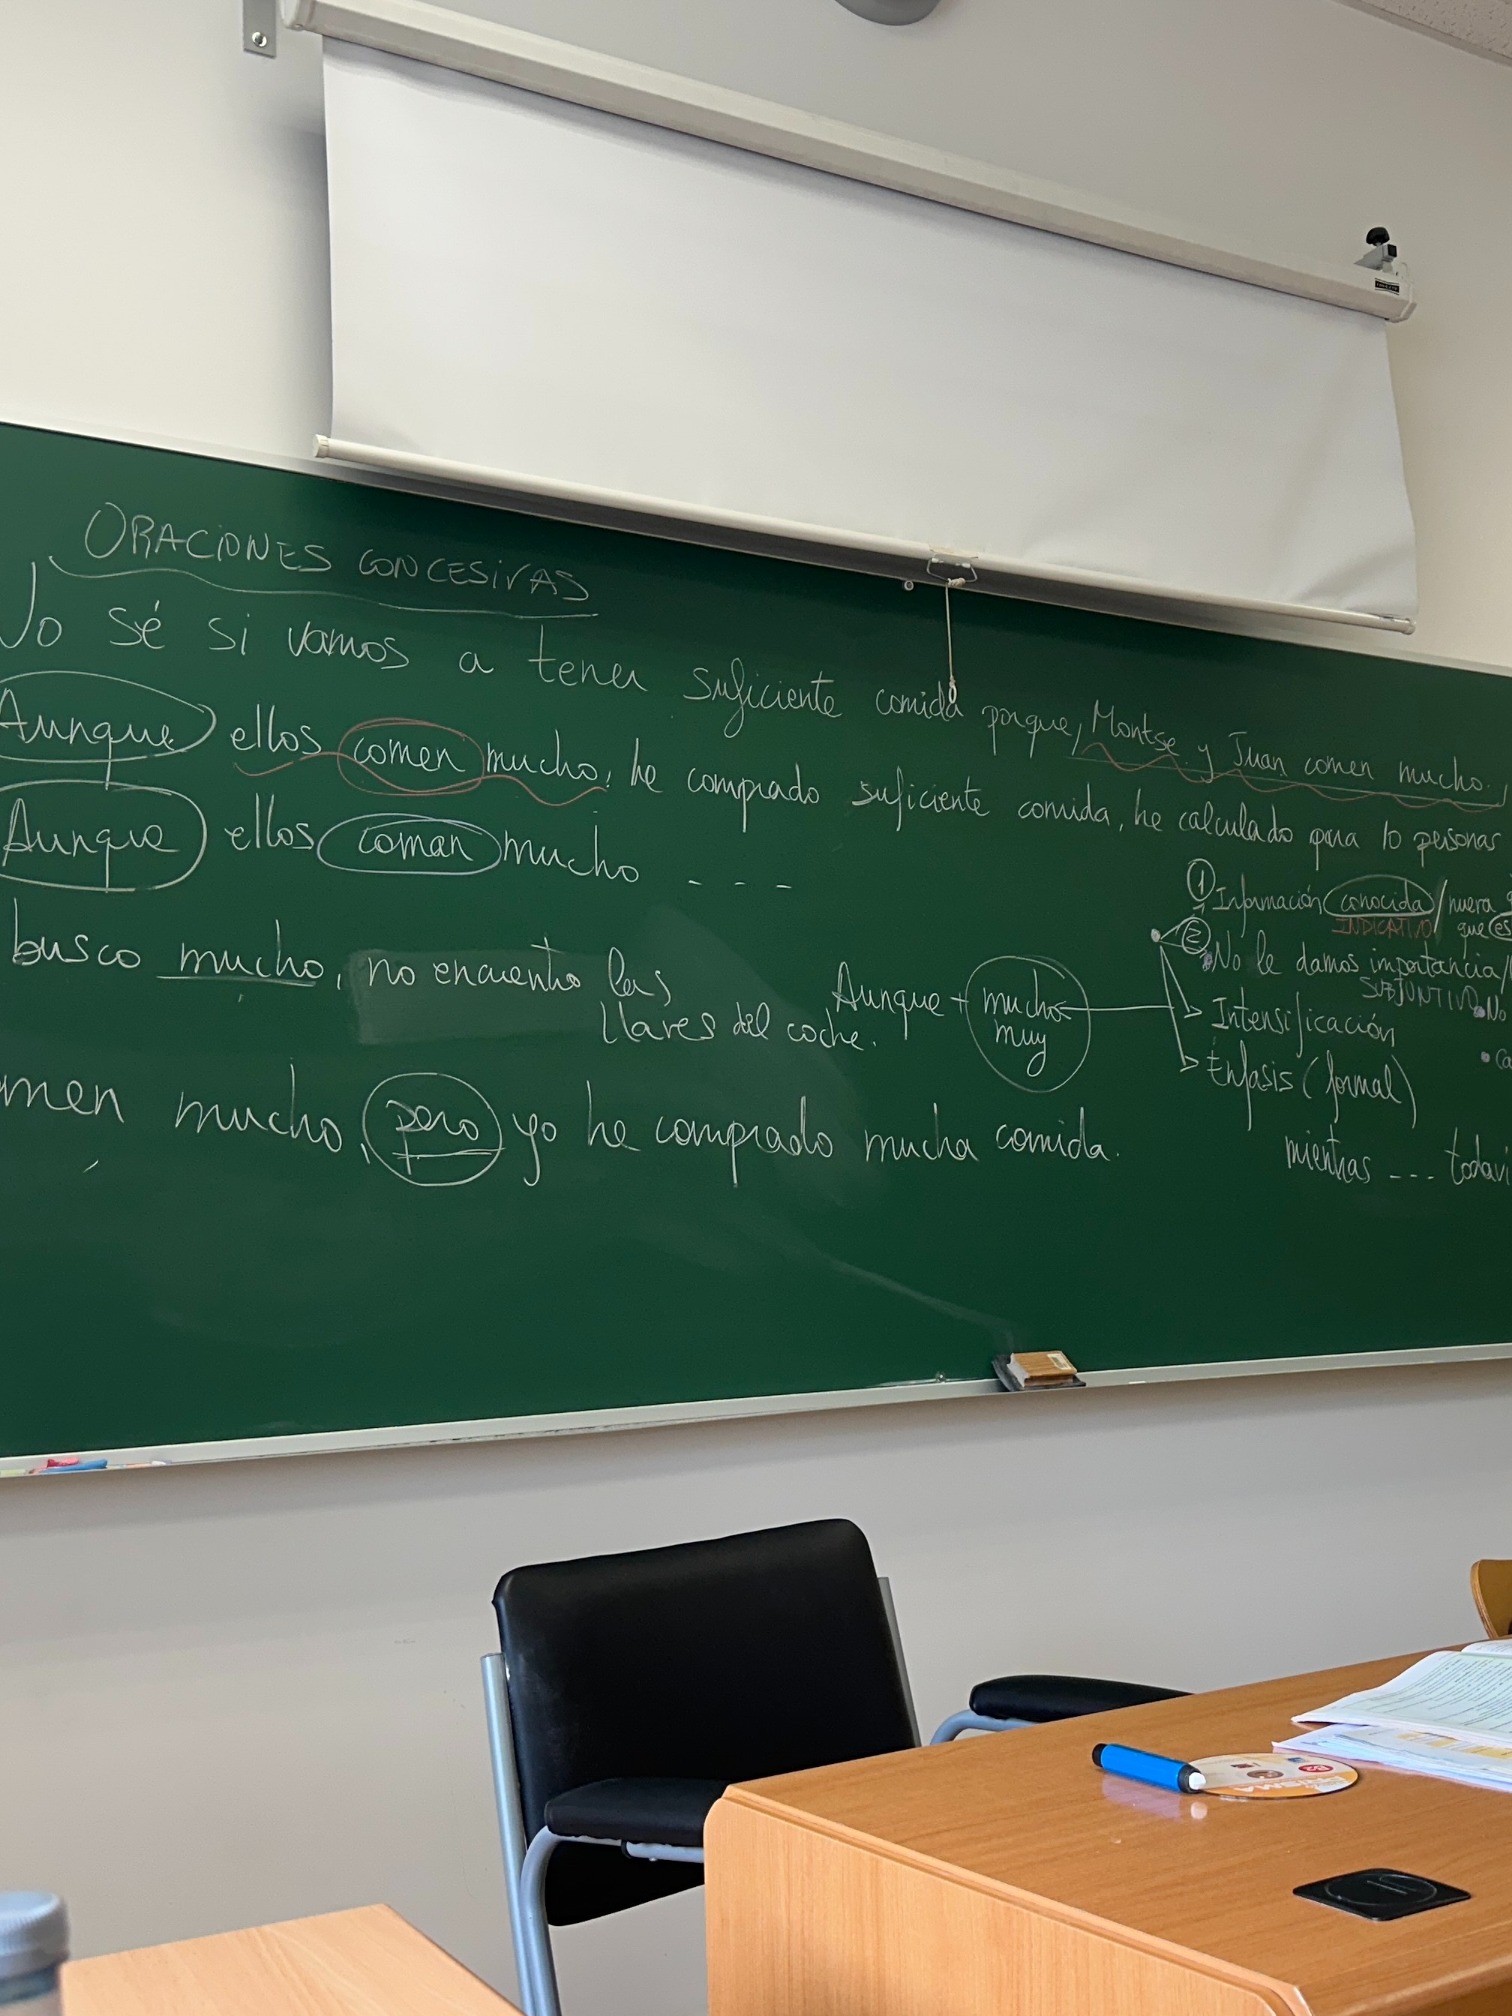 ORACIONES CONCESIVAS
No sé si vamos a tener suficiente comida porque, Montse y Juan comen mucho.
Aunque ellos comen mucho, he comprado suficiente comida, he calculado para 10 personas
Aunque ellos coman mucho - - - -
busco mucho, no encuentro las
llaves del coche.
Aunque + mucho
muy
① Información conocida / nueva
INDICATIVO que es
② No le damos importancia /
SUBJUNTIVO No
Intensificación
Énfasis (formal)
men mucho, pero yo he comprado mucha comida.
mientras - - - todaví
PRISMA